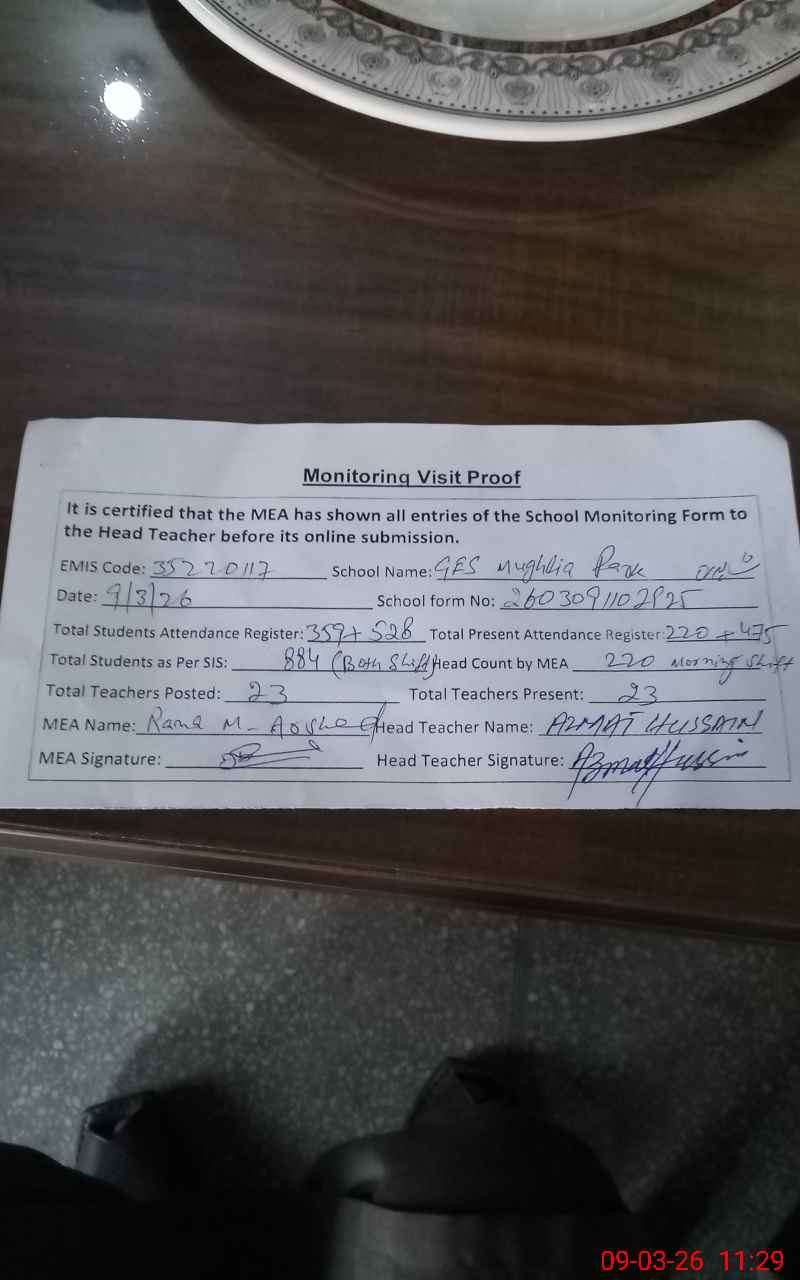 Monitoring Visit Proof
It is certified that the MEA has shown all entries of the School Monitoring Form to
the Head Teacher before its online submission.
EMIS Code: 35220117 School Name: GES Mughlia Park
Date: 9/3/26 School form No: 2603091102925
Total Students Attendance Register: 359+ 528 Total Present Attendance Register: 220 + 475
Total Students as Per SIS: 884 (Both Shift) Head Count by MEA 220 Morning Shift
Total Teachers Posted: 23 Total Teachers Present: 23
MEA Name: Rana M- Head Teacher Name: AZMAT HUSSAIN
MEA Signature: Head Teacher Signature: Azmat Hussain
09-03-26 11:29